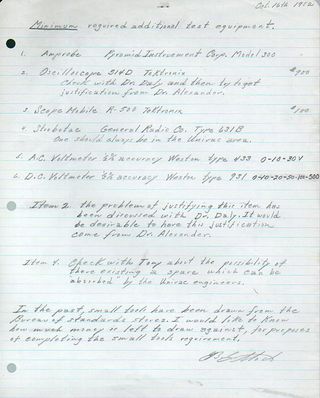 Oct. 16th 1952
Minimum required additional test equipment.
1. Amprobe Pyramid Instrument Corp. Model 300
2. Oscilloscope 514D Tektronix $900
Check with Dr. Daly and then try to get
justification from Dr. Alexander.
3. Scope Mobile R-500 Tektronix $100
4. Strobotac General Radio Co. Type 631B
One should always be in the Univac area.
5. A.C. Voltmeter ½% accuracy Weston type 433 0-10-30V
6. D.C. Voltmeter ½% accuracy Weston type 931 0-10-20-50-100-500
Item 2. the problem of justifying this item has
been discussed with Dr. Daly. It would
be desirable to have this justification
come from Dr. Alexander.
Item 4. Check with Tony about the possibility of
there existing a spare which can be
"absorbed" by the Univac engineers.
In the past, small tools have been drawn from the
Bureau of standards stores. I would like to know
how much money is left to draw against, for purposes
of completing the small tools requirement.